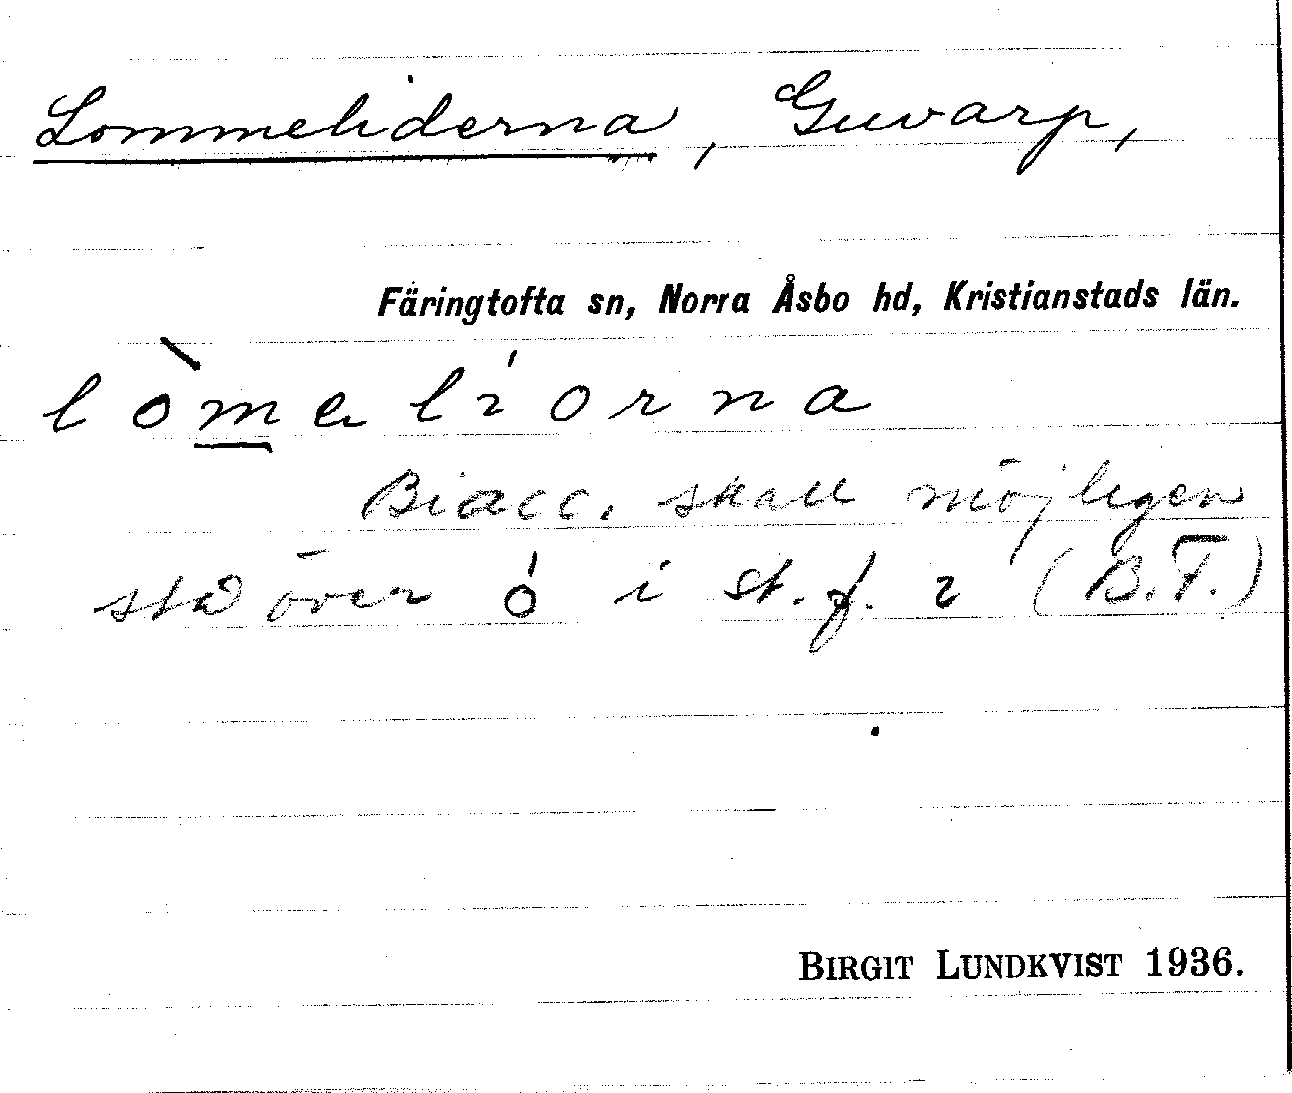 Lommeliderna, Guvarp,
Färingtofta sn, Norra Åsbo hd, Kristianstads län.
lòmelíorna
Biacc. skall möjligen
stå över ó i st. f. ı (B.F.)
BIRGIT LUNDKVIST 1936.